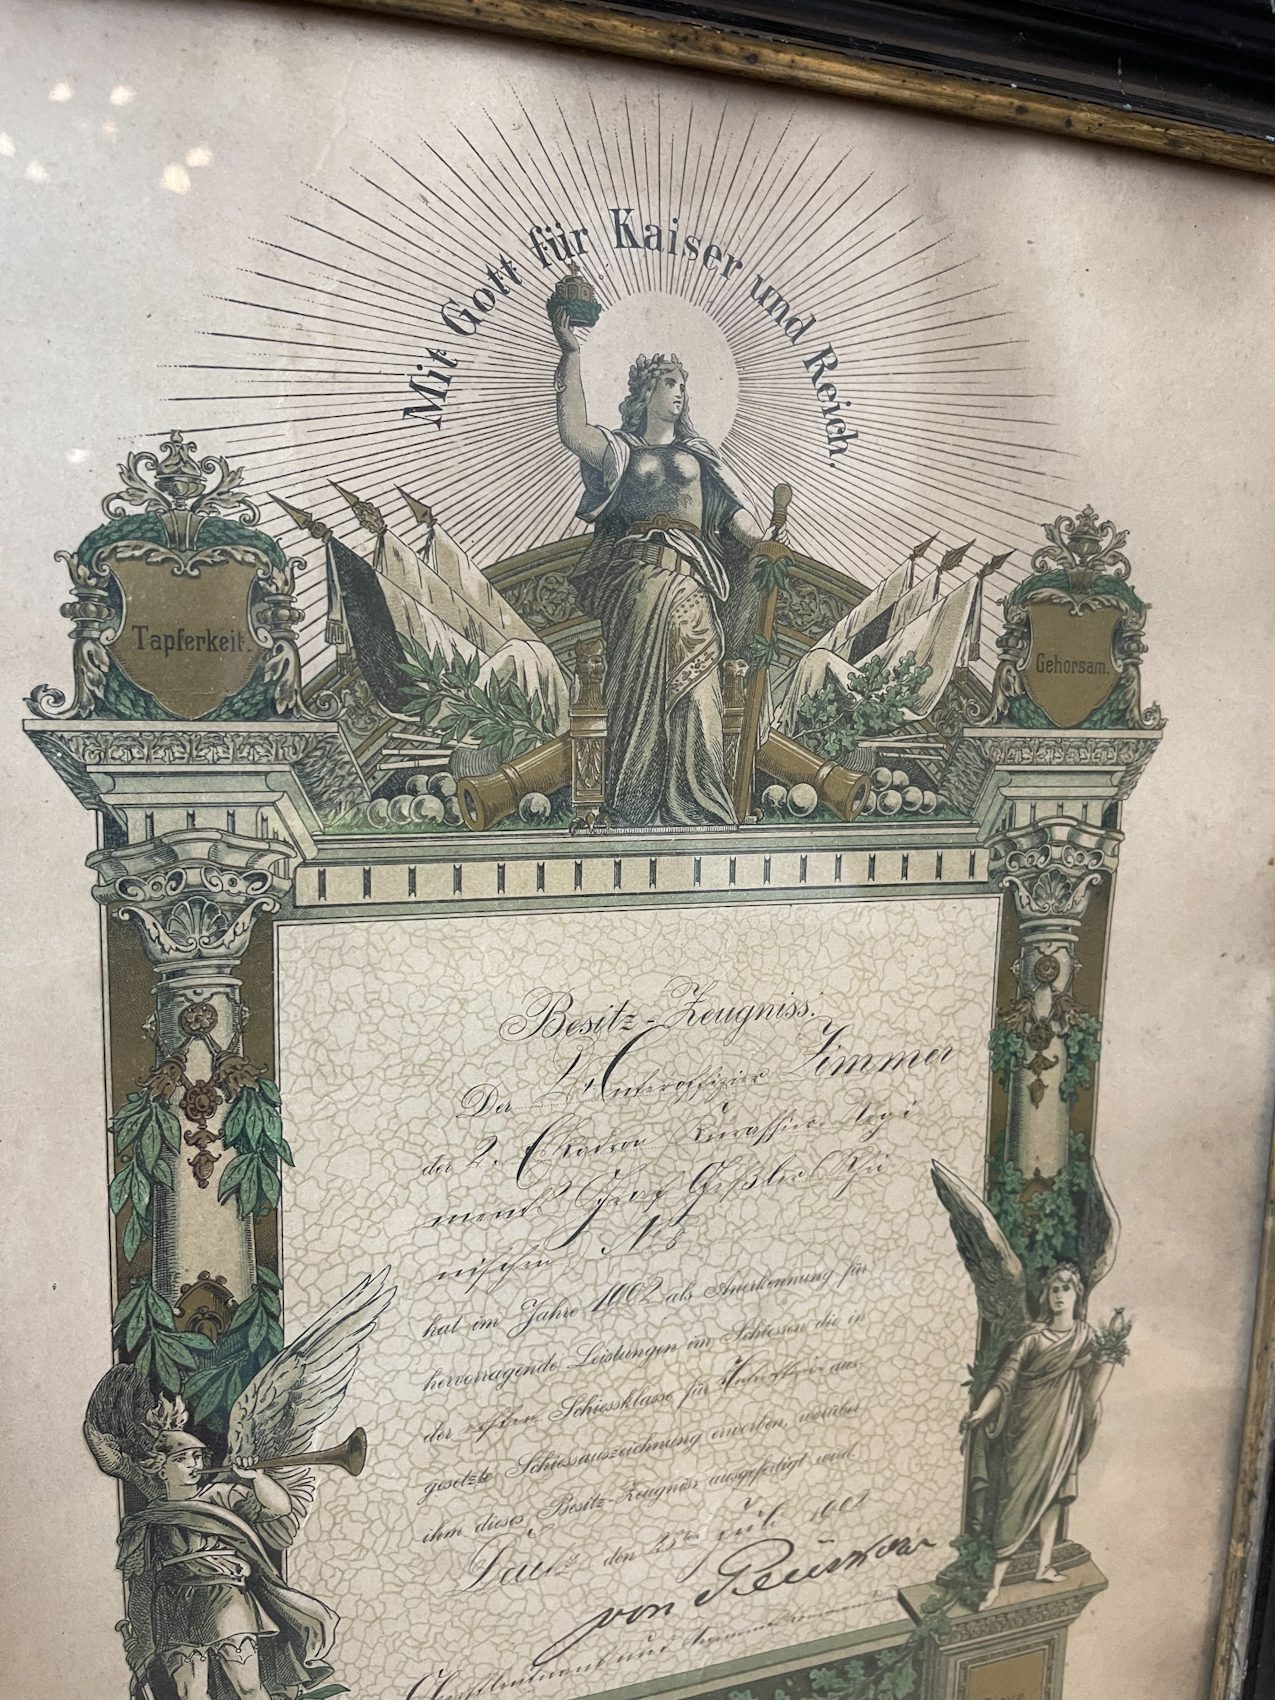 Mit Gott für Kaiser und Reich.
Tapferkeit.
Gehorsam.
Besitz-Zeugniss.
Der Unteroffizier Zimmer
der 2. Eskadron Kürassier-Regi
ments Graf Geßler Rhei
nischen No 8
hat im Jahre 1902 als Anerkennung für
hervorragende Leistungen im Schiessen die in
der ersten Schiessklasse für Unteroffiziere aus-
gesetzte Schiessauszeichnung erworben, worüber
ihm dieses Besitz-Zeugniss ausgefertigt wird.
Deutz den 25ten Juli 1902
von
Oberstleutnant und Regimentskommandeur